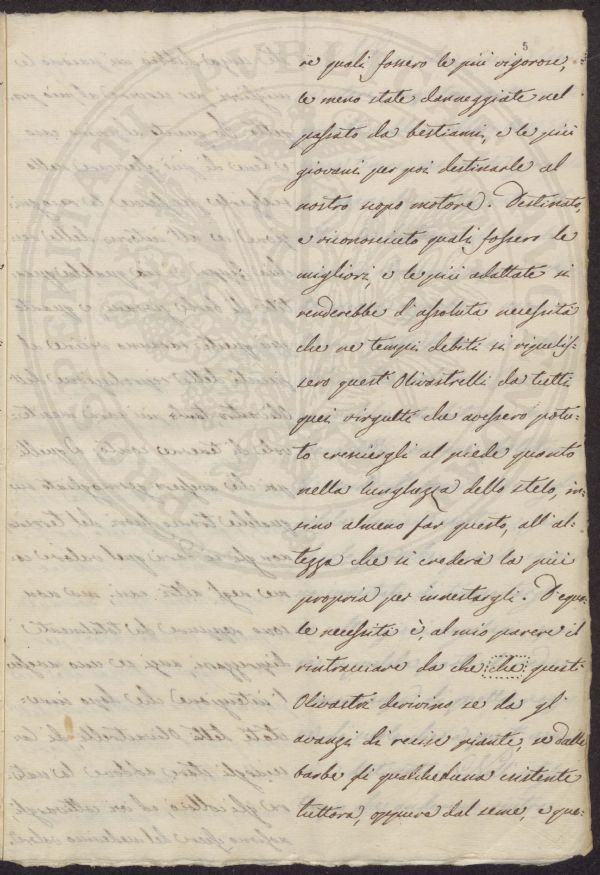 5
re quali fossero le più vigorose,
le meno state danneggiate nel
passato da bestiami, e le più
giovani per poi destinarle al
nostro scopo motore. Destinato,
e riconosciuto quali fossero le
migliori, e le più adattate si
renderebbe d'assoluta necessità
che ne tempi debiti si ripulis=
sero questi Olivastrelli da tutti
quei virgulti che avessero potu=
to crescergli al piede quanto
nella lunghezza dello stelo, in=
sino almeno far questo, all'al=
tezza che si crederà la più
propria per indestargli. D'egua=
le necessità è, al mio parere il
rintracciare da che che questi
Olivastri derivino, se da gl'
avanzi di recise piante, se dalle
barbe di qualcheduna esistente
tuttora, oppure dal seme, e que=